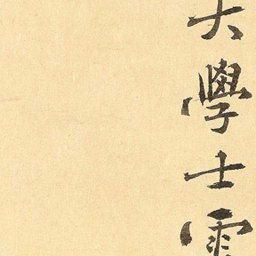 大學士